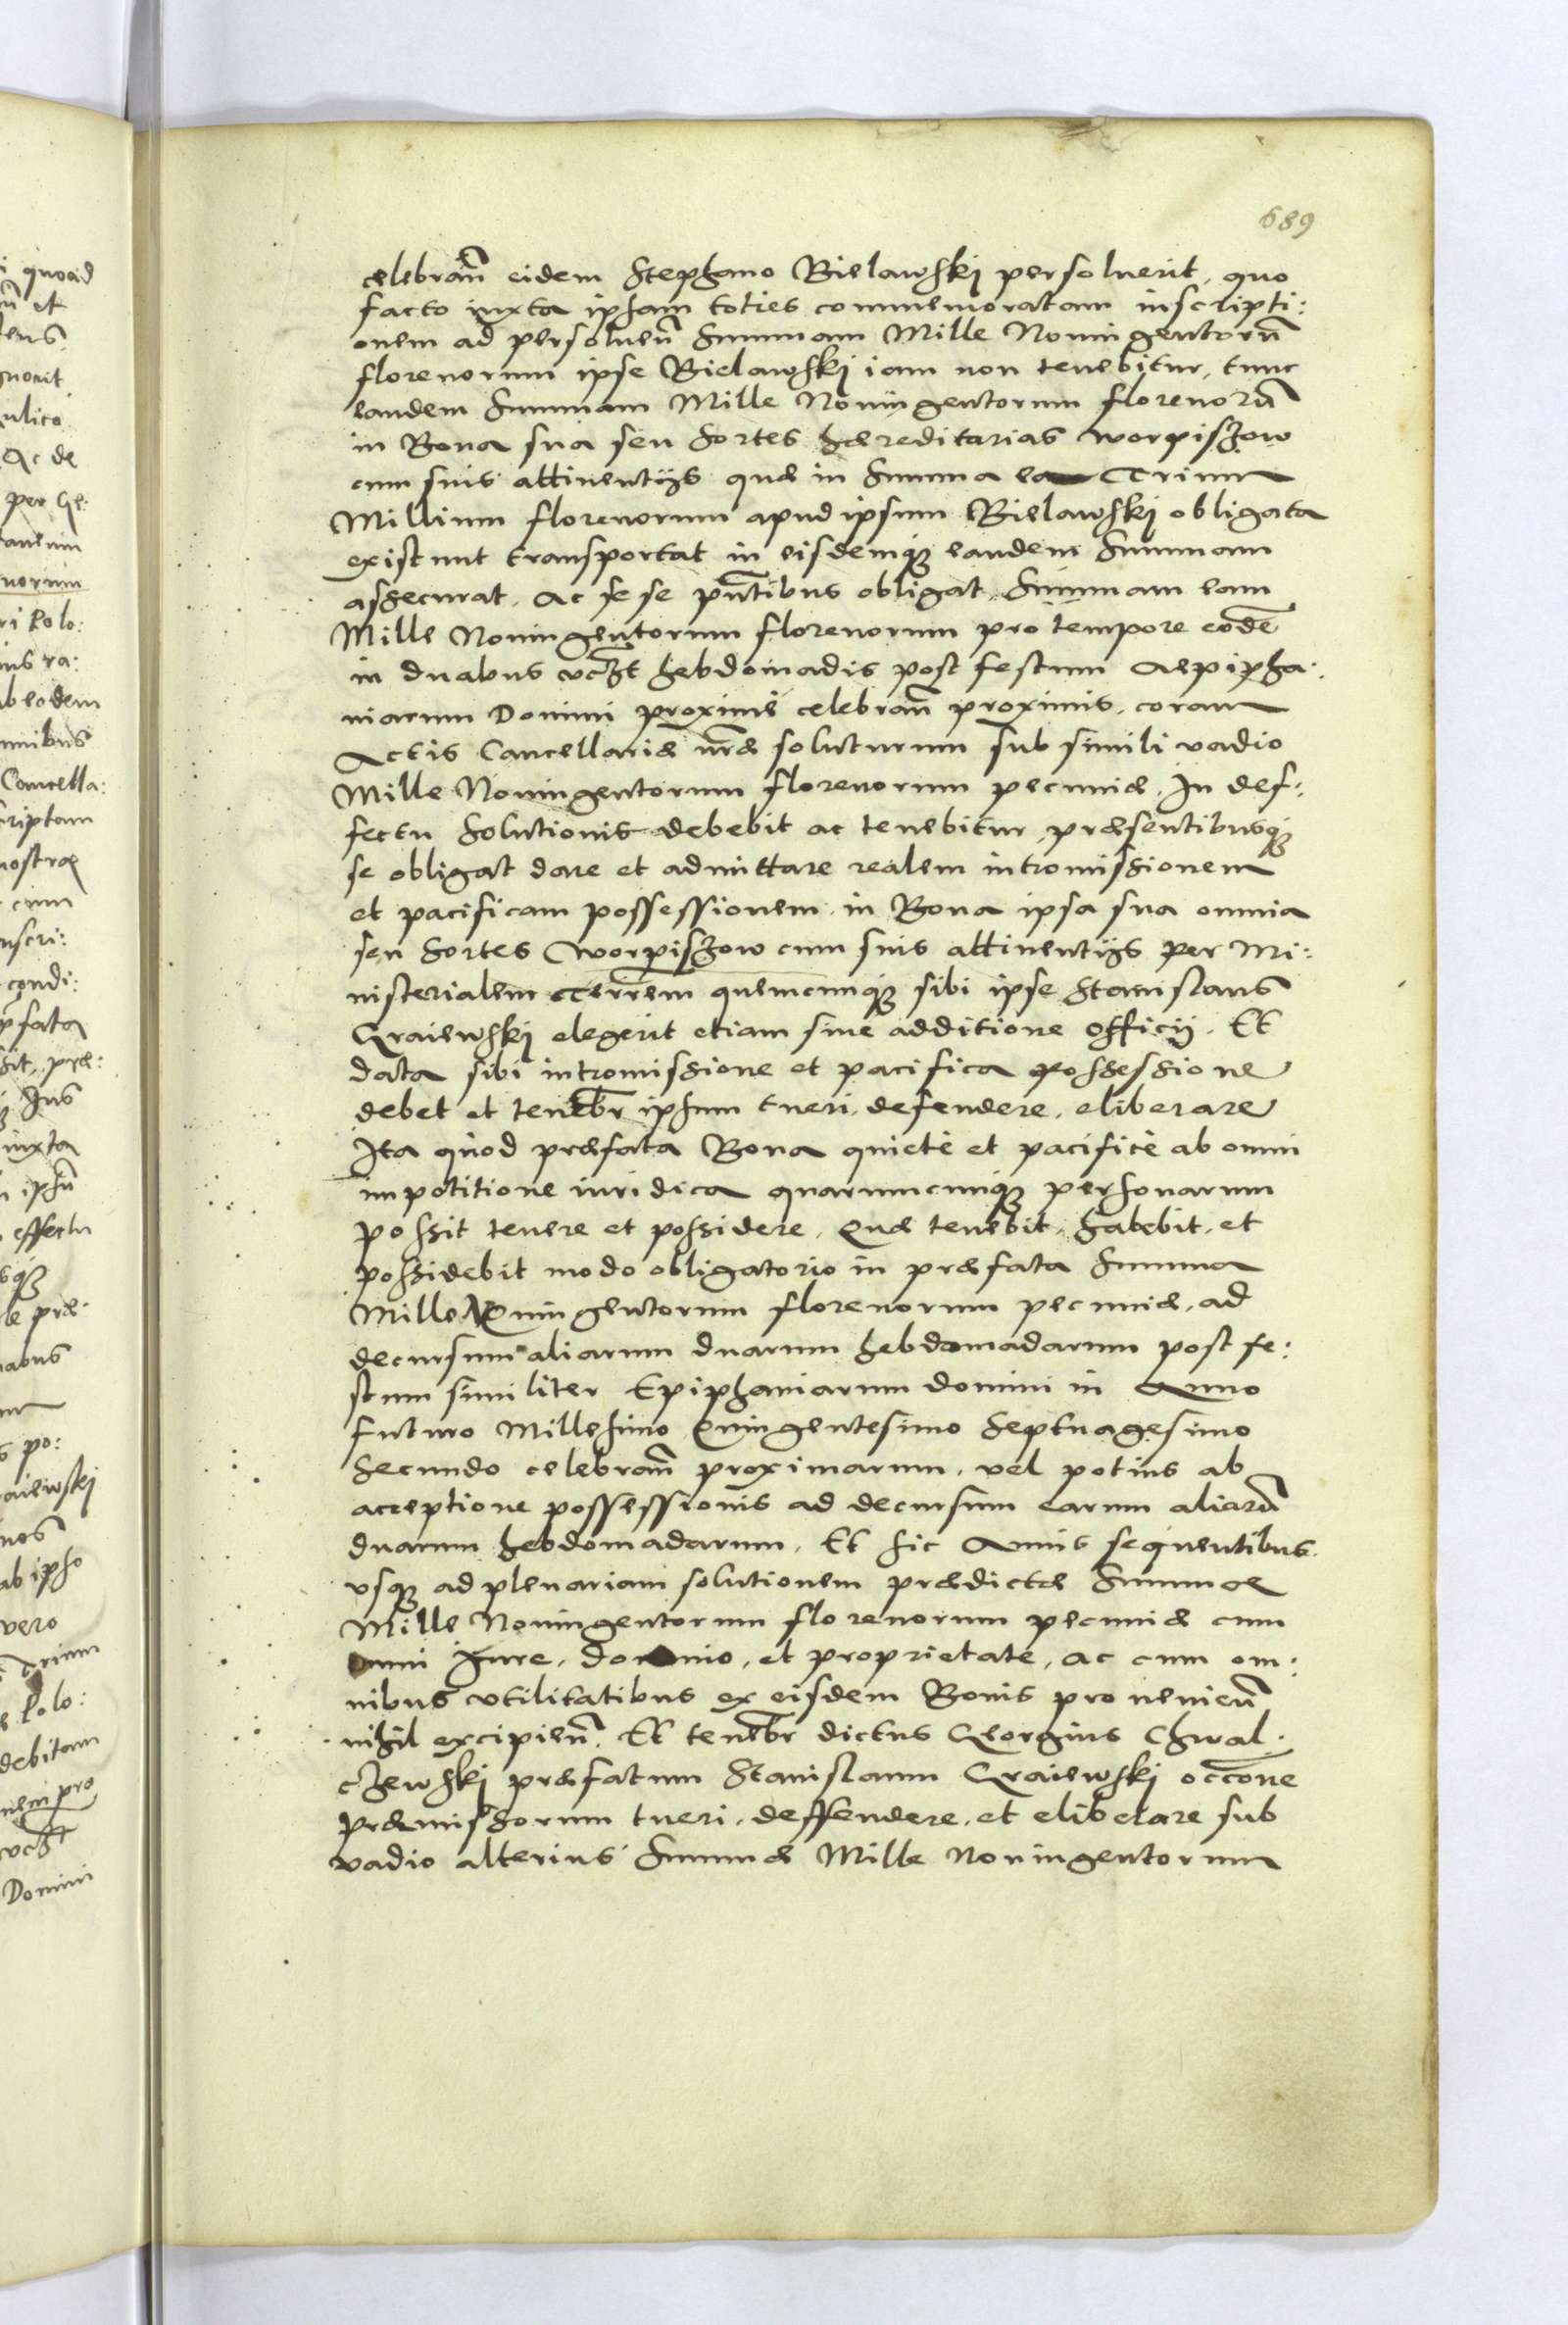 689
celebrañ eidem Stephano Bielawskj persoluerit, quo
facto iuxta ipsam toties commemoratam inscripti:
onem ad persoluen̄ Summam Mille Noningentorū
florenorum ipse Bielawskj iam non tenebitur, tunc
eandem Summam Mille Noningentorum florenorū
in Bona sua seu Sortes hæreditarias worpiszow
cum suis attinentijs quæ in Summa ea Trium
Millium florenorum apud ipsum Bielawskj obligata
existunt transportat in eisdemq; eandem Summam
assecurat. Ac se se pn̄tibus obligat Summam eam
Mille Noningentorum florenorum pro tempore eodē
in duabus vcz̄t hebdomadis post festum Aepipha:
niarum Domini proximè celebrañ proximis, coram
Actis Cancellariæ nr̄æ soluturum sub simili vadio
Mille Noningentorum florenorum pecuniæ. In def:
fectu Solutionis debebit ac tenebitur, præsentibusq;
se obligat dare et admittare realem intromissionem
et pacificam possessionem in Bona ipsa sua omnia
seu Sortes Worpiszow cum suis attinentijs per Mi:
nisterialem terrēm quemcunq; sibi ipse Stanislaus
Graiewskj elegerit etiam sine additione officij. Et
data sibi intromissione et pacifica possessione
debet et tenebr̄ ipsum tueri, defendere, eliberare
Ita quod præfata Bona quietè et pacificè ab omni
impetitione iuridica quarumcunq; personarum
possit tenere et possidere. Quæ tenebit, habebit, et
possidebit modo obligatorio in præfata Summa
Mille Noningentorum florenorum pecuniæ, ad
decursum aliarum duarum hebdomadarum post fe:
stum similiter Epiphaniarum domini in Anno
futuro Millesimo Quingentesimo Septuagesimo
Secundo celebrañ proximarum, vel potius ab
acceptione possessionis ad decursum earum aliarū
duarum hebdomadarum. Et sic Annis sequentibus
vsq; ad plenariam solutionem prædictæ Summæ
Mille Noningentorum florenorum pecuniæ cum
omni Iure, dominio, et proprietate, ac cum om:
nibus vtilitatibus ex eisdem Bonis prouenien̄
nihil excipien̄. Et tenebr̄ dictus Georgius Chwal:
czewskj præfatum Stanislaum Graiewskj occōne
præmissorum tueri, deffendere, et eliberare sub
vadio alterius Summæ Mille Noningentorum